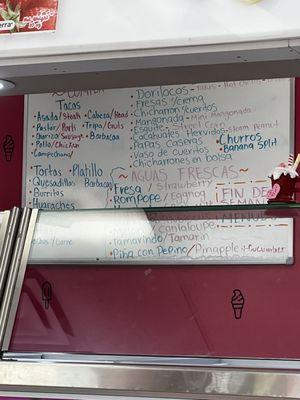 ~COMIDA~
Tacos
• Asada/Steak • Cabeza/Head
• Pastor/Pork • Tripa/Guts
• Chorizo/Sausage • Barbacoa
• Pollo/Chicken
• Campechano/
• Tortas • Platillo
• Quesadillas Barbacoa
• Burritos
• Huaraches
• Dorilocos
• Fresas/crema
• Chicharron/cueritos
• Mangonada - Mini Mangonada
• Esquite Street Corn
• Cacahuates Hervidos - Steam Peanut
• Papas Caseras
• Vaso de cueritos
• Chicharrones en bolsa
• Churros
• Banana Split
~ AGUAS FRESCAS ~
• Fresa / Strawberry
• Rompope / Eggnog
FIN DE
SEMANA
MENUDO
cantaloupe
Tamarindo/Tamarin
• Piña con Pepino/Pineapple + Cucumber